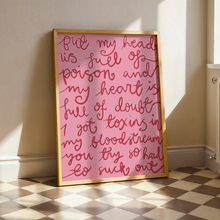 but my head
is full of
poison and
my heart is
full of doubt
I got toxins in
my bloodstream
you try so hard
to suck out